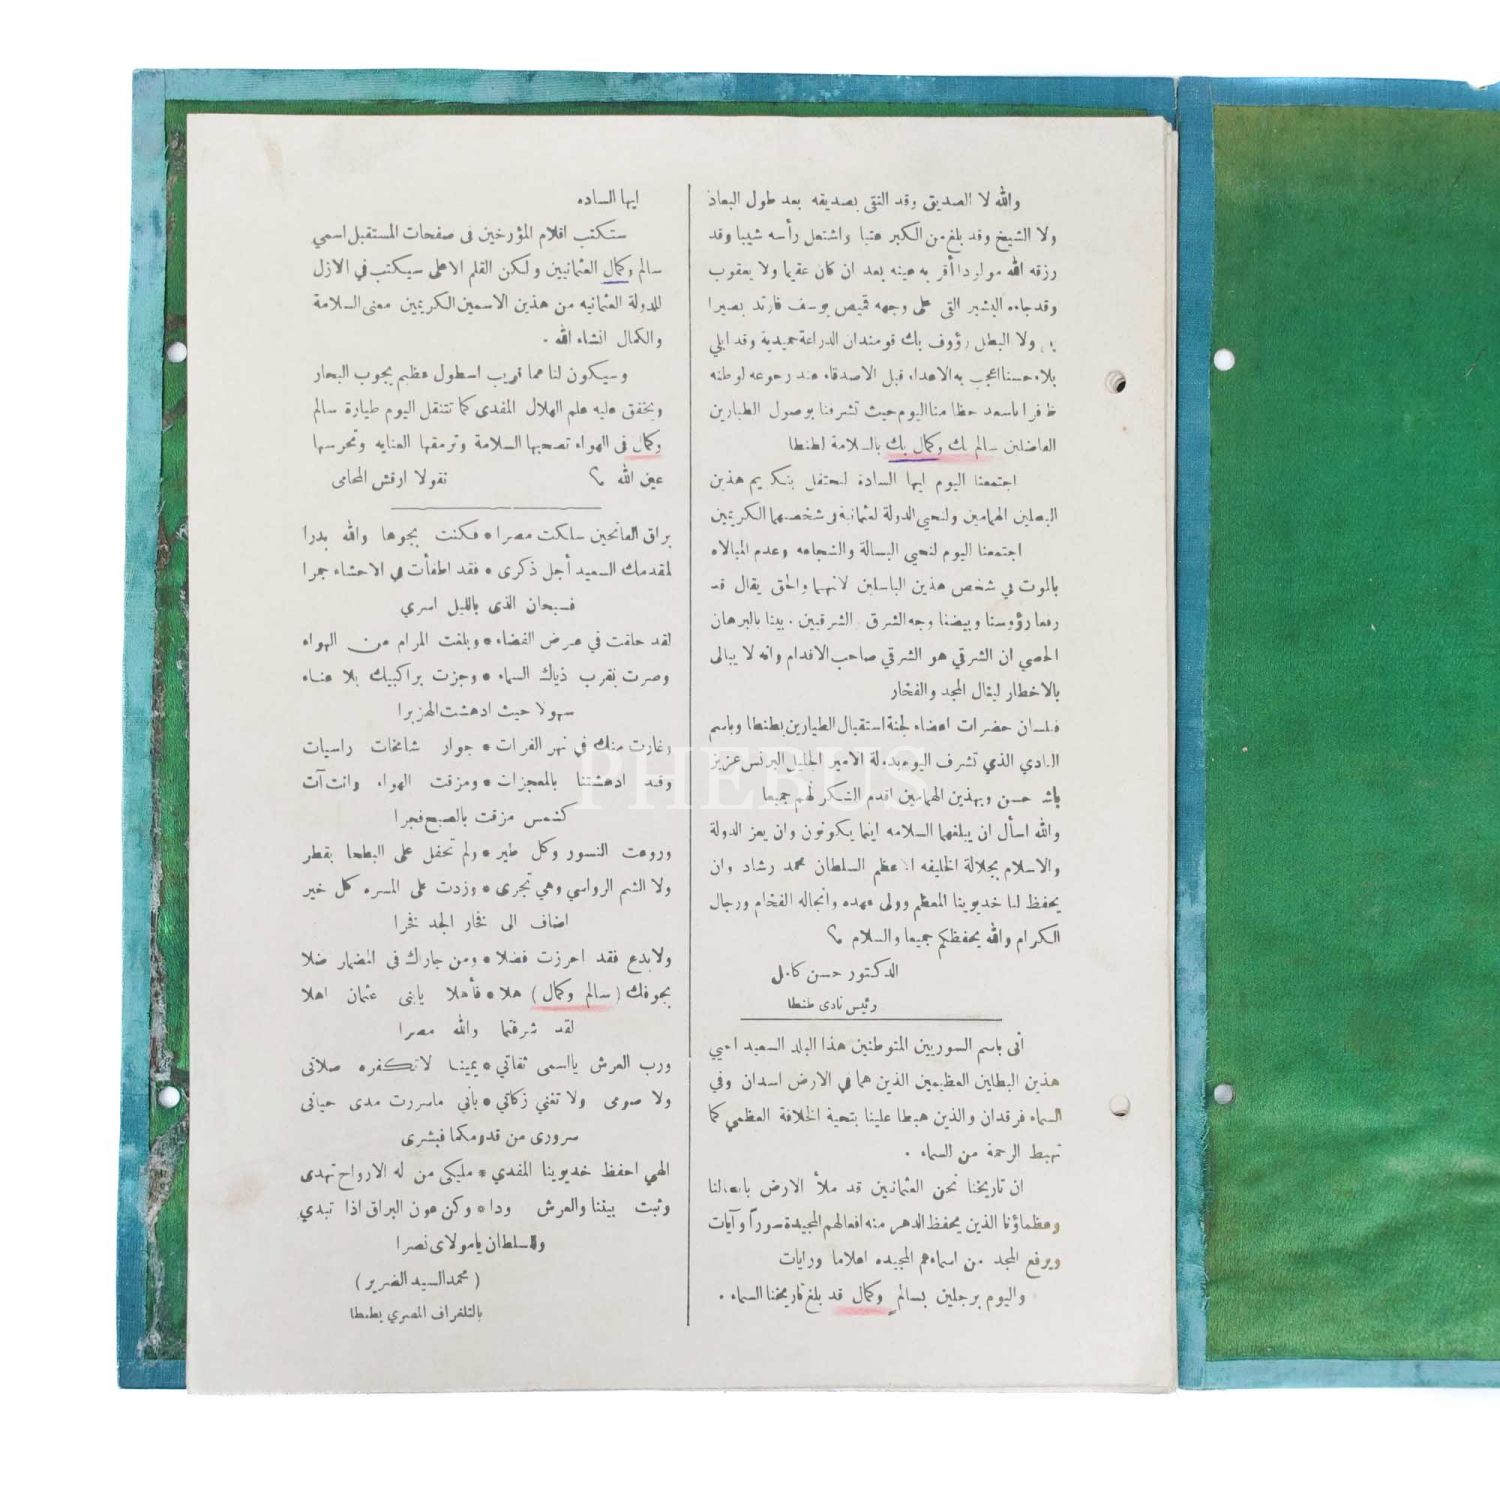 والله لا الصديق وقد التقى بصديقه بعد طول البعاذ
ولا الشيخ وقد بلغ من الكبر عتيا واشتعل رأسه شيبا وقد
رزقه الله مولودا أقر به عينه بعد ان كان عقيما ولا يعقوب
وقد جاءه البشير التى على وجهه قميص يوسف فارتد بصيرا
ولا البطل رؤوف بك قومندان الدراعة حميدية وقد ابلي
بلاء حسنا اعجب به الاعداء قبل الاصدقاء عند رجوعه لوطنه
ظافرا باسعد حظا منا اليوم حيث تشرفنا بوصول الطيارين
الفاضلين سالم بك وكمال بك بالسلامة لطنطا
اجتمعنا اليوم ايها السادة لنحتفل بتكريم هذين
البطلين الهمامين ولنحيي الدولة العثمانية في شخصيهما الكريمين
اجتمعنا اليوم لنحيي البسالة والشجاعه وعدم المبالاه
بالموت في شخص هذين الباسلين لانهما والحق يقال قد
رفعا رؤوسنا وبيضنا وجه الشرق والشرقيين . بينا بالبرهان
الحصي ان الشرقي هو الشرقي صاحب الاقدام وانه لا يبالى
بالاخطار لينال المجد والفخار
فبلسان حضرات اعضاء لجنة استقبال الطيارين بطنطا وباسم
النادي الذي تشرف اليوم بدولة الامير الجليل البرنس عزيز
باشا حسن وبهذين الهمامين اقدم الشكر لهم جميعا
والله اسأل ان يبلغهما السلامه اينما يكونون وان يعز الدولة
والاسلام بجلالة الخليفه الاعظم السلطان محمد رشاد وان
يحفظ لنا خديوينا المعظم وولى عهده وانجاله الفخام ورجال
الكرام والله يحفظكم جميعا والسلام ؟
الدكتور حسن كامل
رئيس نادى طنطا
انى باسم السوريين المتوطنين هذا البلد السعيد احيي
هذين البطلين العظيمين الذين هما في الارض اسدان وفي
السماء فرقدان والذين هبطا علينا بتحية الخلافة العظمي كما
تهبط الرحمة من السماء .
ان تاريخنا نحن العثمانيين قد ملأ الارض بابطالنا
وعظماؤنا الذين يحفظ الدهر منه افعالهم المجيدة سوراً وآيات
ويرفع المجد من اسماءهم المجيده اعلاما ورايات
واليوم برجلين بسالم وكمال قد بلغ تاريخنا السماء .
ايها الساده
ستكتب اقلام المؤرخين فى صفحات المستقبل اسمي
سالم وكمال العثمانيين ولكن القلم الاعلى سيكتب في الازل
للدولة العثمانيه من هذين الاسمين الكريمين معنى السلامة
والكمال انشاء الله .
وسيكون لنا عما قريب اسطول عظيم يجوب البحار
ويخفق عليه علم الهلال المفدى كما تتنقل اليوم طيارة سالم
وكمال فى الهواء تصحبها السلامة وترمقها العنايه وتحرسها
عين الله ؟ نقولا ارقش المحامى
براق الفاتحين سلكت مصرا * فكنت بجوها والله بدرا
لمقدمك السعيد أجل ذكرى * فقد اطفأت في الاحشاء جمرا
فسبحان الذى بالليل اسري
لقد حلقت في عرض الفضاء * وبلغت المرام من الهواء
وصرت بقرب ذياك السماء * وجزت براكبيك بلا عناء
سهولا حيث ادهشت الهزبرا
وغارت منك فى نهر الفرات * جوار شامخات راسيات
وقد ادهشتنا بالمعجزات * ومزقت الهواء وانت آت
كشمس مزقت بالصبح فجرا
وروعت النسور وكل طير * ولم تحفل على البطحا بقطر
ولا الشم الرواسي وهي تجرى * وزدت على المسره كل خير
اضاف الى فخار الجد فخرا
ولا بدع فقد احرزت فضلا * ومن جاراك فى المضمار ضلا
بجوفك (سالم وكمال) هلا * فأهلا يابنى عثمان اهلا
لقد شرفتما والله مصرا
ورب العرش يا اسمى ثقاتي * يمينا لا تكفره صلاتى
ولا صومى ولا تغني زكاتي * بأني ماسررت مدى حياتى
سرورى من قدومكما فبشرى
الهي احفظ خديوينا المفدي * مليكى من له الارواح تهدى
وثبت بيننا والعرش ودا * وكن عون البراق اذا تبدي
والسلطان يامولاى نصرا
(محمد السيد الضرير)
بالتلغراف المصري بطنطا
PHEBUS